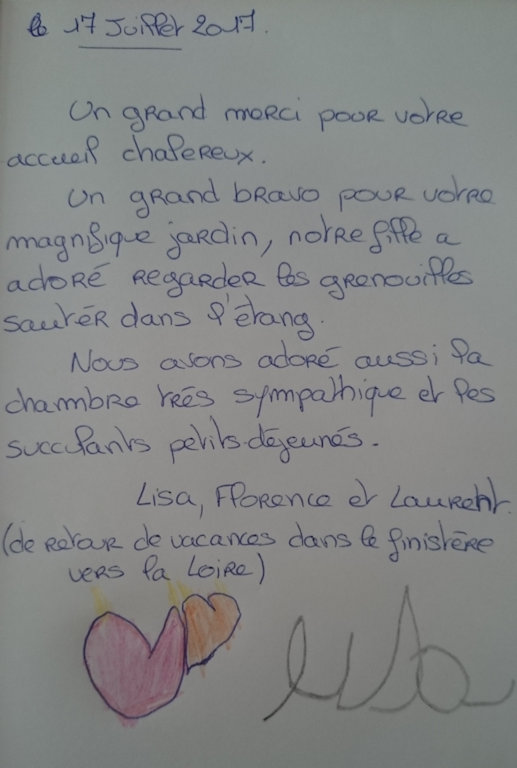 le 17 Juillet 2017.
Un grand merci pour votre
accueil chalereux.
Un grand bravo pour votre
magnifique jardin, notre fille a
adoré regarder les grenouilles
sautér dans l'étang.
Nous avons adoré aussi la
chambre trés sympathique et les
succulants petits-déjeunés.
Lisa, Florence et Laurent.
(de retour de vacances dans le finistère
vers la Loire)
Lisa